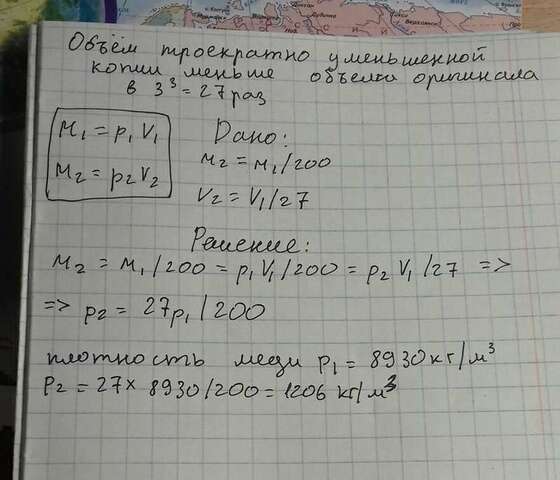 Объём троекратно уменьшенной
копии меньше объёма оригинала
в 3³ = 27 раз
м₁ = p₁ V₁
м₂ = p₂ V₂
Дано:
м₂ = м₁/200
V₂ = V₁/27
Решение:
м₂ = м₁/200 = p₁V₁/200 = p₂ V₁/27 =>
=> p₂ = 27p₁/200
плотность меди p₁ = 8930 кг/м³
p₂ = 27 × 8930/200 = 1206 кг/м³